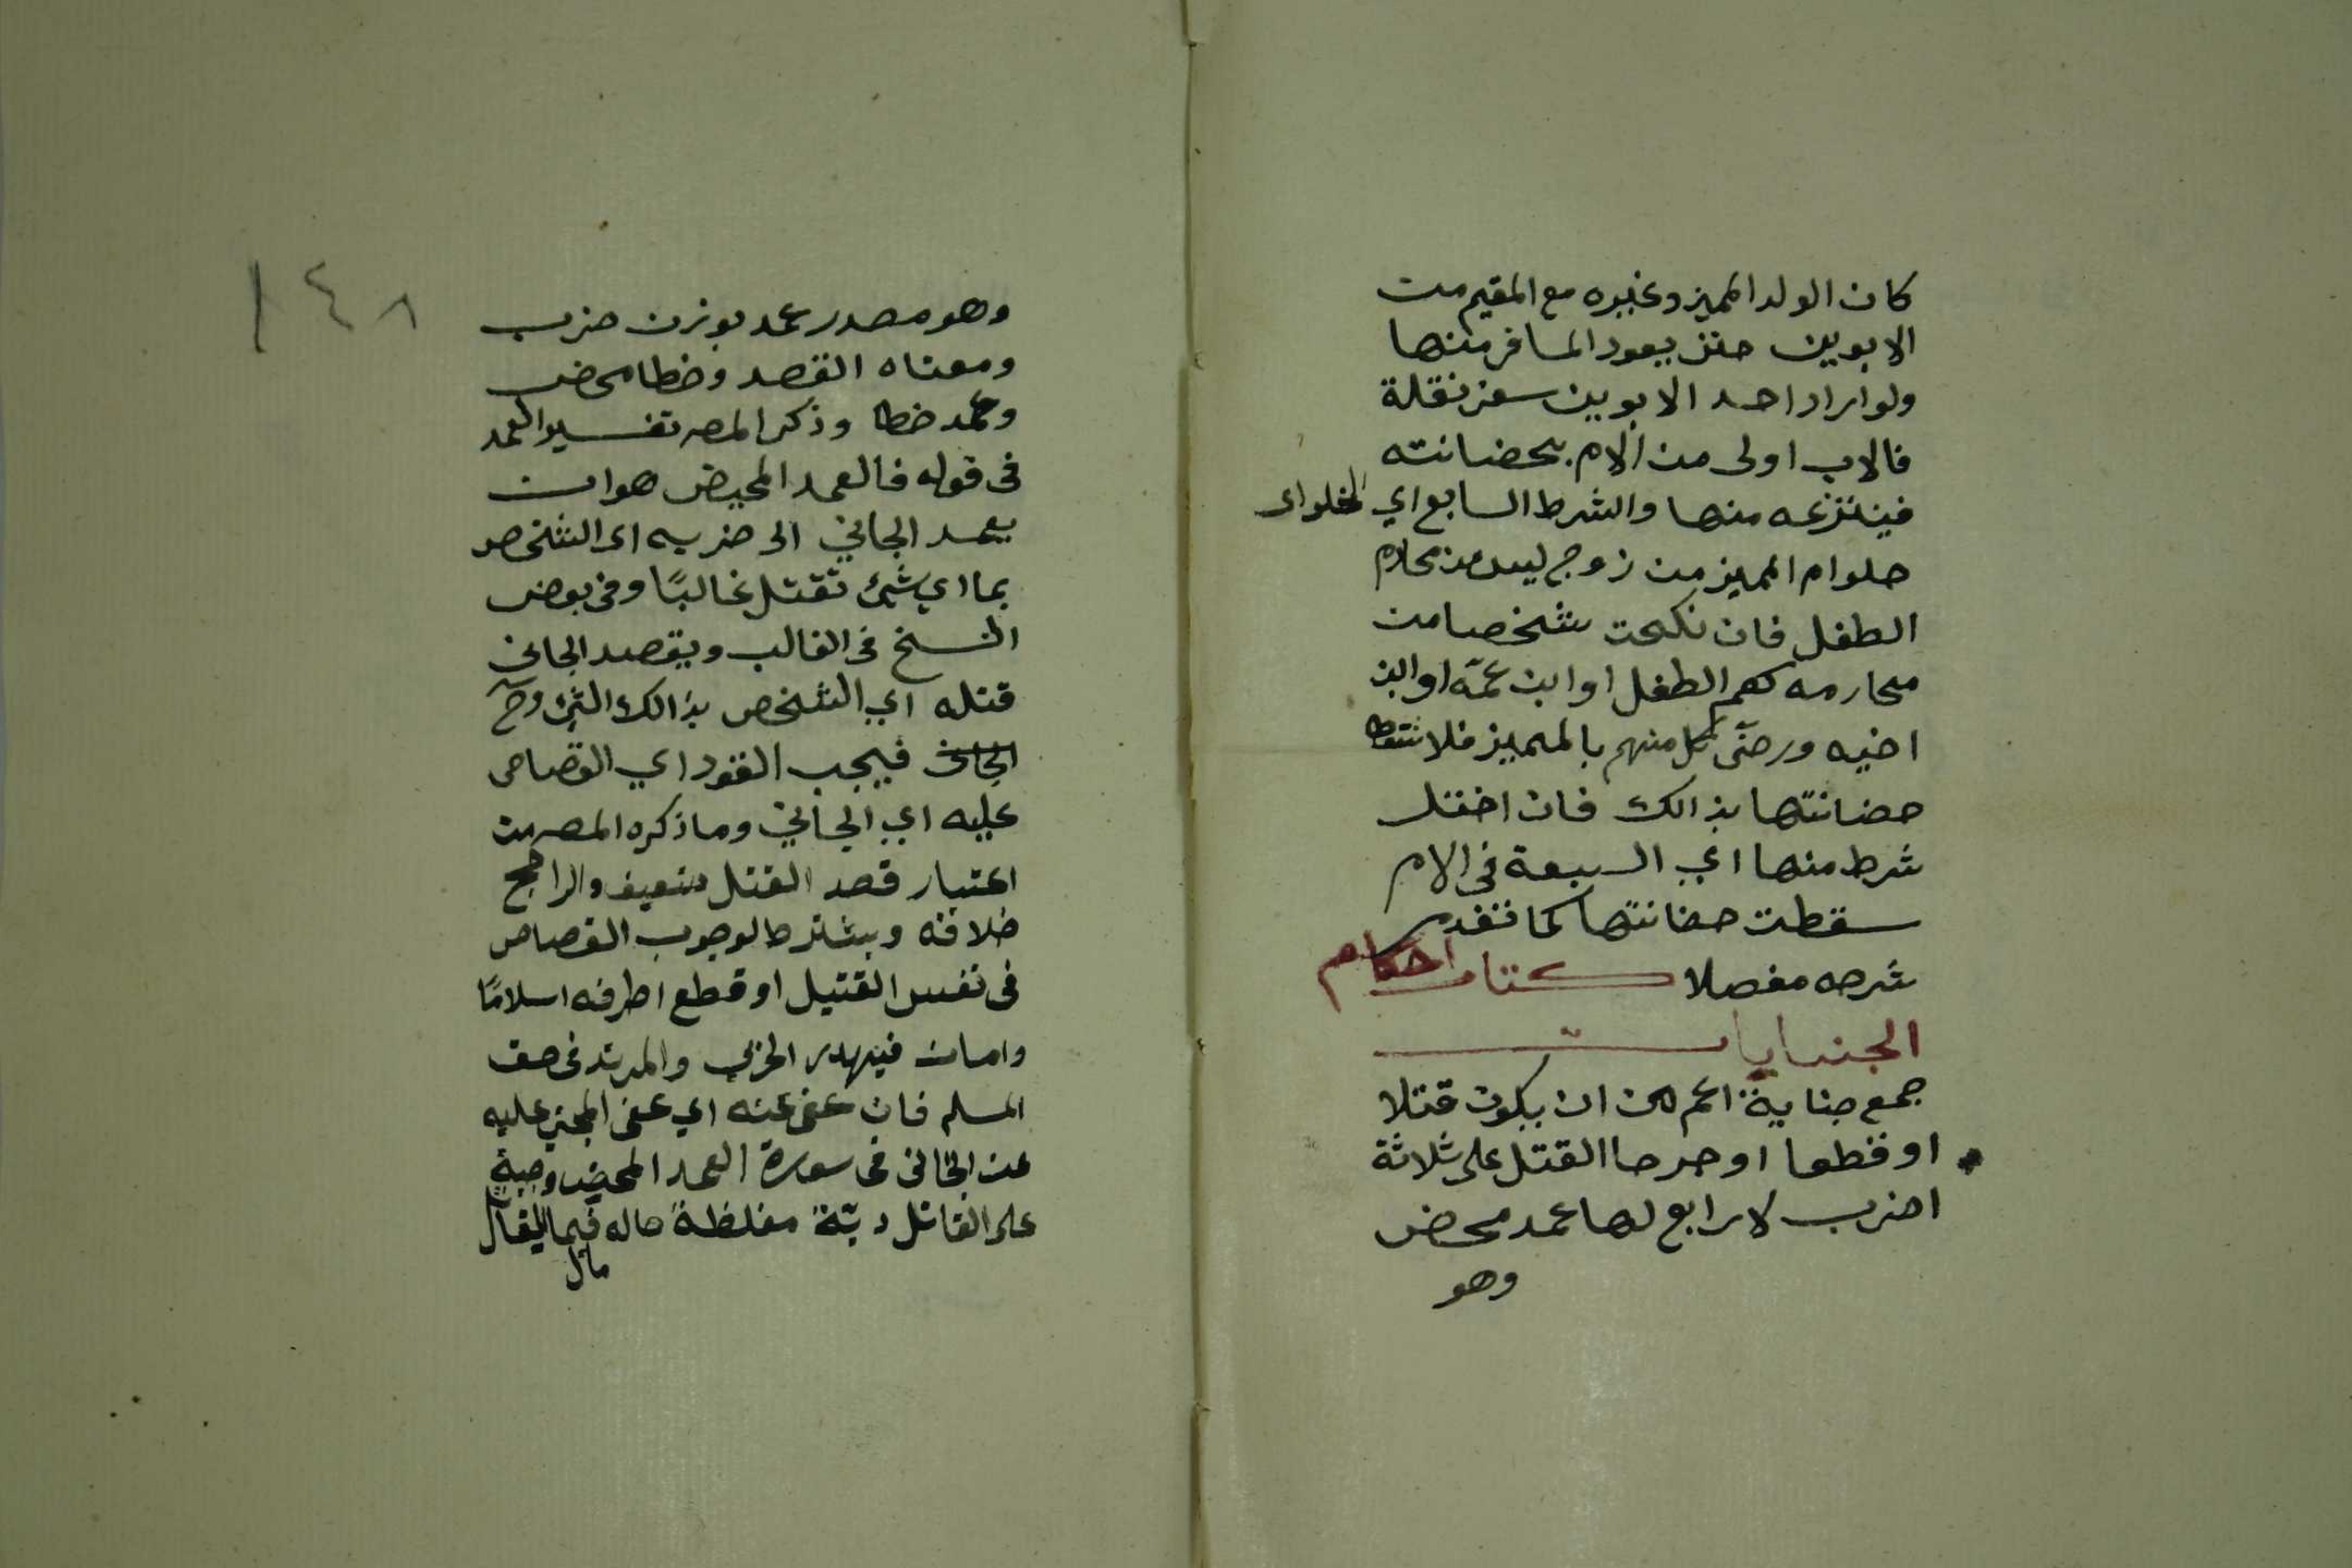 كان الولد المميز وغيره مع المقيم من
الابوين حتى يعود المسافر منهما
ولو اراد احد الابوين سفر نقلة
فالاب اولى من الام بحضانته
فينتزعه منها والشرط السابع اي الخلو اى
خلو ام المميز من زوج ليس من محارم
الطفل فان نكحت شخصا من
محارمه كعم الطفل او ابن عمه او ابن
اخيه ورضى كل منهم بالمميز فلا تسقط
حضانتها بذالك فان اختل
شرط منها اي السبعة فى الام
سقطت حضانتها كما تقدم
شرحه مفصلا كتاب احكام
الجنايات
جمع جناية اعم من ان يكون قتلا
او قطعا او جرحا القتل على ثلاثة
اضرب لا رابع لها عمد محض
وهو
١٤٨
وهو مصدر عمد بوزن ضرب
ومعناه القصد وخطا محض
وعمد خطا وذكر المصه تفسير العمد
فى قوله فالعمد المحيض هو ان
يعمد الجاني الى ضربه اى الشخص
بما اي شئ تقتل غالبًا وفى بعض
النسخ فى الغالب ويقصد الجانى
قتله اي الشخص بذالك الشئ وح
الجانى فيجب القود اي القصاص
عليه اي الجاني وما ذكره المصه من
اعتبار قصد القتل ضعيف والراجح
خلافه ويشترط لوجوب القصاص
فى نفس القتيل او قطع اطرفه اسلامًا
وامان فيهدر الحربي والمرتد فى حق
المسلم فان عفى عنه اي عفى المجني عليه
عن الجانى فى سورة العمد المحيض وجبة
على القاتل دية مغلظة حاله فيما
مال